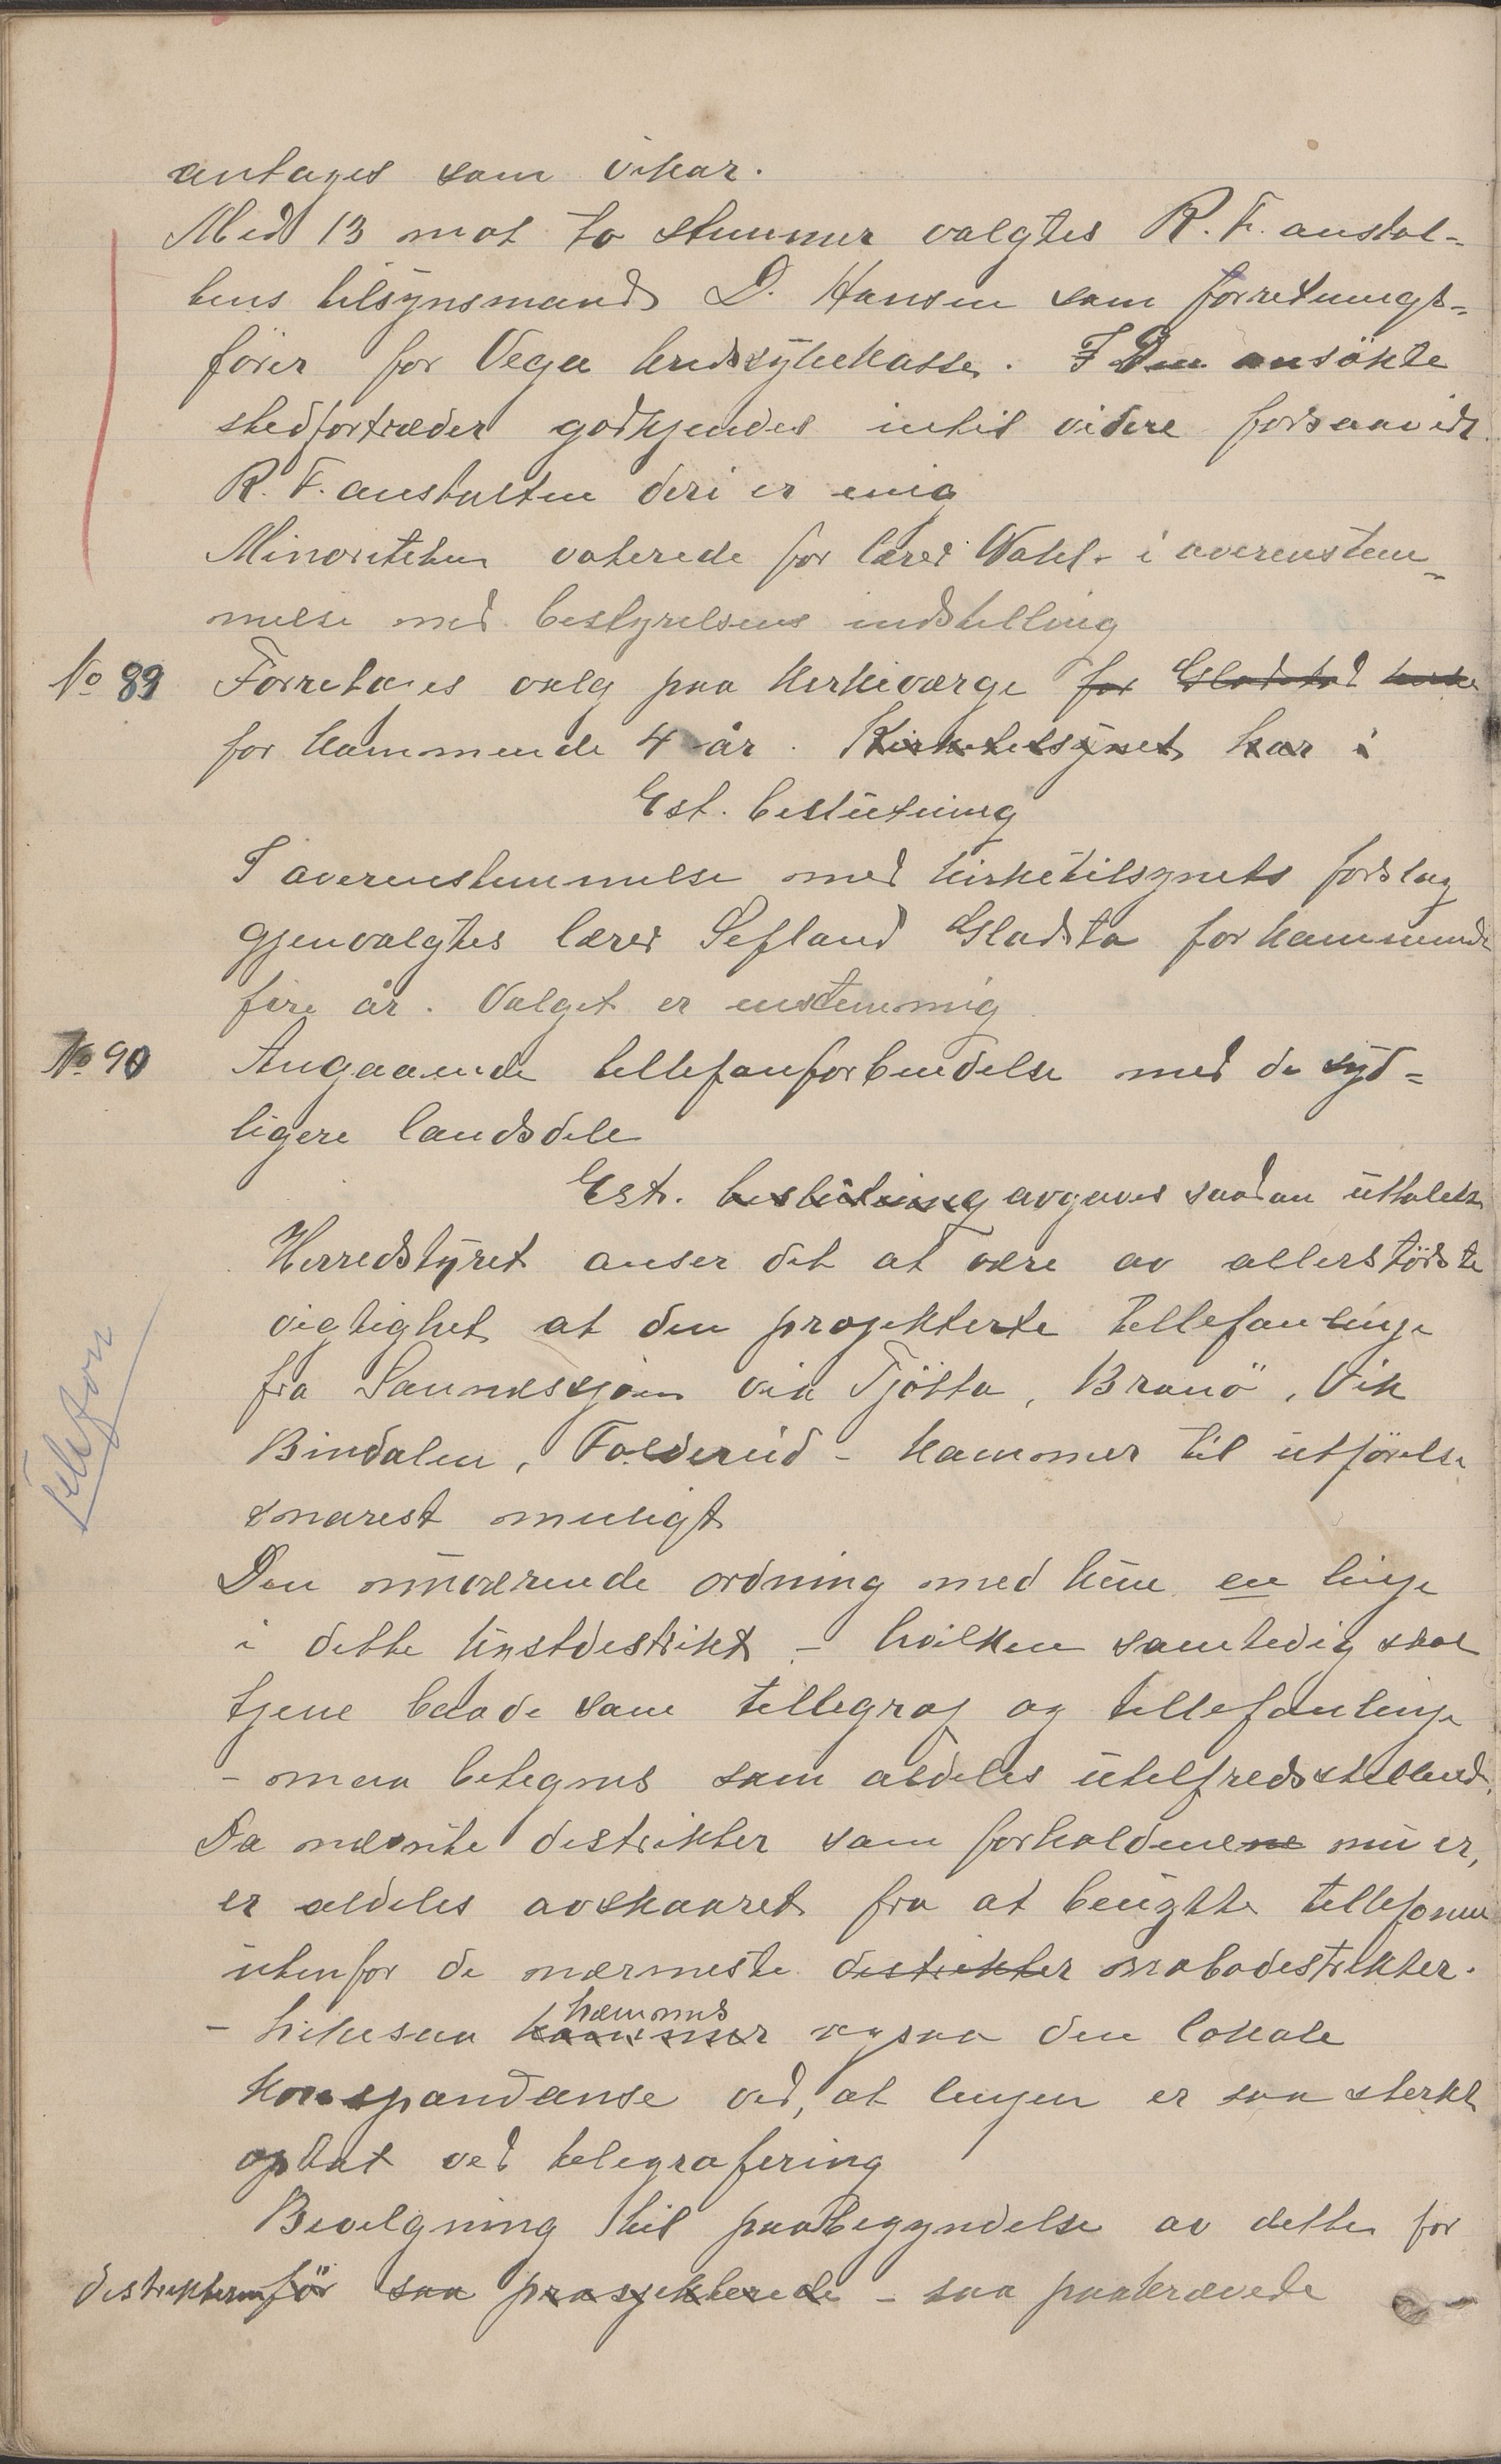 antages som vikar.
Med 13 mot to stemmer valgtes R. F. anstal-
tens tilsynsmand D. Hansen som forretnings-
fører for Vega kredssykekasse. Den ansökte
stedfortræder godkjendes intil videre forsaavidt
R. F. anstalten deri er enig
Minoriteten voterede for lærer Wahl - i overenstem-
melse med bestyrelsens indstilling
No 89 Forretages valg paa kirkeværge for Gladstad kirke
for kommende 4 år. Kirketilsynet har i
Est. beslutning
I overenstemmelse med kirketilsynets forslag
gjenvalgtes lærer Sefland Gladsta for kommende
fire år. Valget er enstemmig
No 90 Angaaende tellefonforbindelse med de syd-
ligere landsdele
Est. beslutning avgaves saadan uttalelse
Herredstyret anser det at være av allerstörste
vigtighet at den projekterte tellefonlinje
fra Sannessjøen via Tjötta, Brönö, Vik
Bindalen, Foldereid - kommer til utförelse
snarest muligt
Telefon
Den nuværende ordning med kun en linje
i dette kystdistrikt - hvilken samtidig skal
tjene baade som tellegraf og tellefonlinje
- maa betegnes som aldeles utilfredsstillende.
Da nævnte distrikter som forholdenene nu er,
er aldeles avskaaret fra at benytte tellefonen
utenfor de nærmeste distrikter nabodistrikter.
hæmmes
- likesaa kommer ogsaa den lokale
korrespondanse ved, at linjen er saa sterkt
optat ved telegrafering
Bevilgning til paabegyndelse av dette for
distrikterne för saa prosjekterede - saa paakrævede